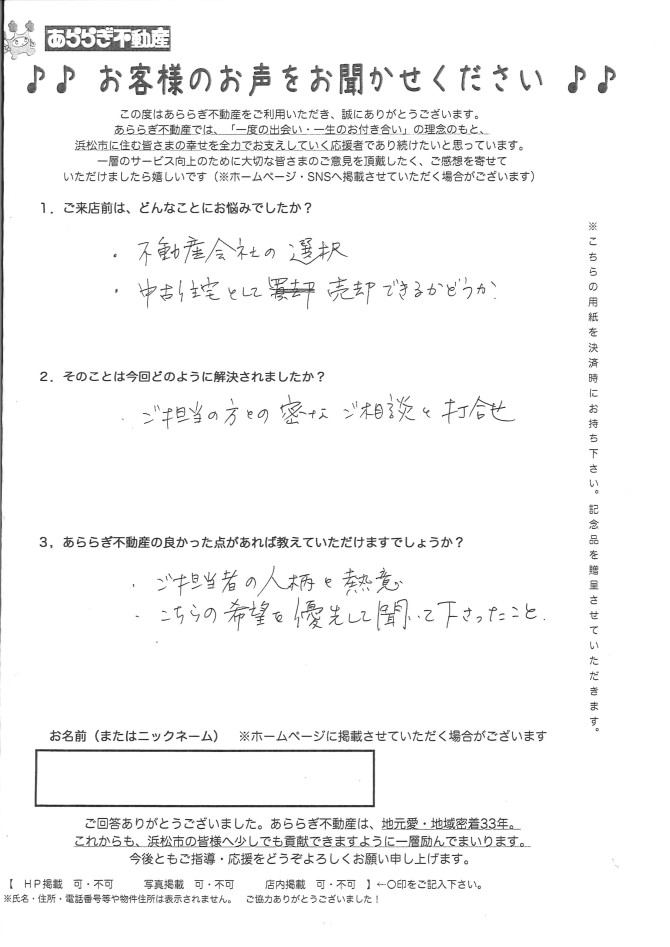 あららぎ不動産
♪♪ お客様のお声をお聞かせください ♪♪
この度はあららぎ不動産をご利用いただき、誠にありがとうございます。
あららぎ不動産では、「一度の出会い・一生のお付き合い」の理念のもと、
浜松市に住む皆さまの幸せを全力でお支えしていく応援者であり続けたいと思っています。
一層のサービス向上のために大切な皆さまのご意見を頂戴したく、ご感想を寄せて
いただけましたら嬉しいです(※ホームページ・SNSへ掲載させていただく場合がございます)
1．ご来店前は、どんなことにお悩みでしたか？
・不動産会社の選択
・中古住宅として 売却できるかどうか.
2．そのことは今回どのように解決されましたか？
・ご担当の方との密な ご相談と打合せ
3，あららぎ不動産の良かった点があれば教えていただけますでしょうか？
・ご担当者の人柄と熱意
・こちらの希望を優先して聞いて下さったこと.
※こちらの用紙を決済時にお持ち下さい。記念品を贈呈させていただきます。
お名前（またはニックネーム） ※ホームページに掲載させていただく場合がございます
ご回答ありがとうございました。あららぎ不動産は、地元愛・地域密着33年。
これからも、浜松市の皆様へ少しでも貢献できますように一層励んでまいります。
今後ともご指導・応援をどうぞよろしくお願い申し上げます。
【 HP掲載 可・不可 写真掲載 可・不可 店内掲載 可・不可 】←○印をご記入下さい。
※氏名・住所・電話番号等や物件住所は表示されません。 ご協力ありがとうございました！